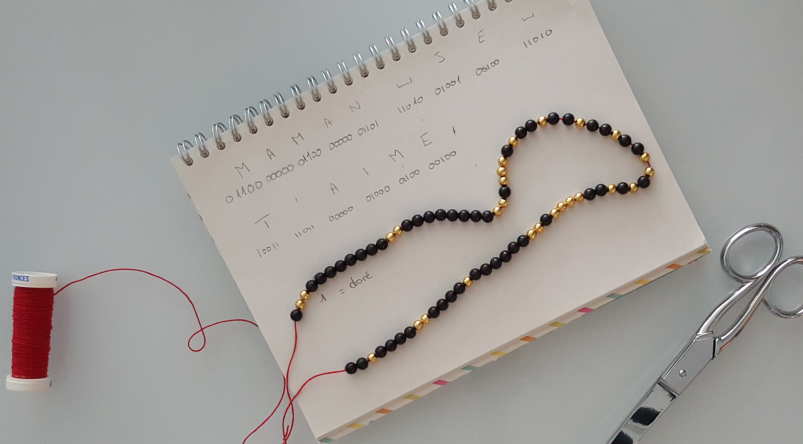 M A M A N ␣ J E ␣
01100 00000 01100 00000 01101 11010 01001 00100 11010
T ' A I M E
10011 11011 00000 01000 01100 00100
1 = doré